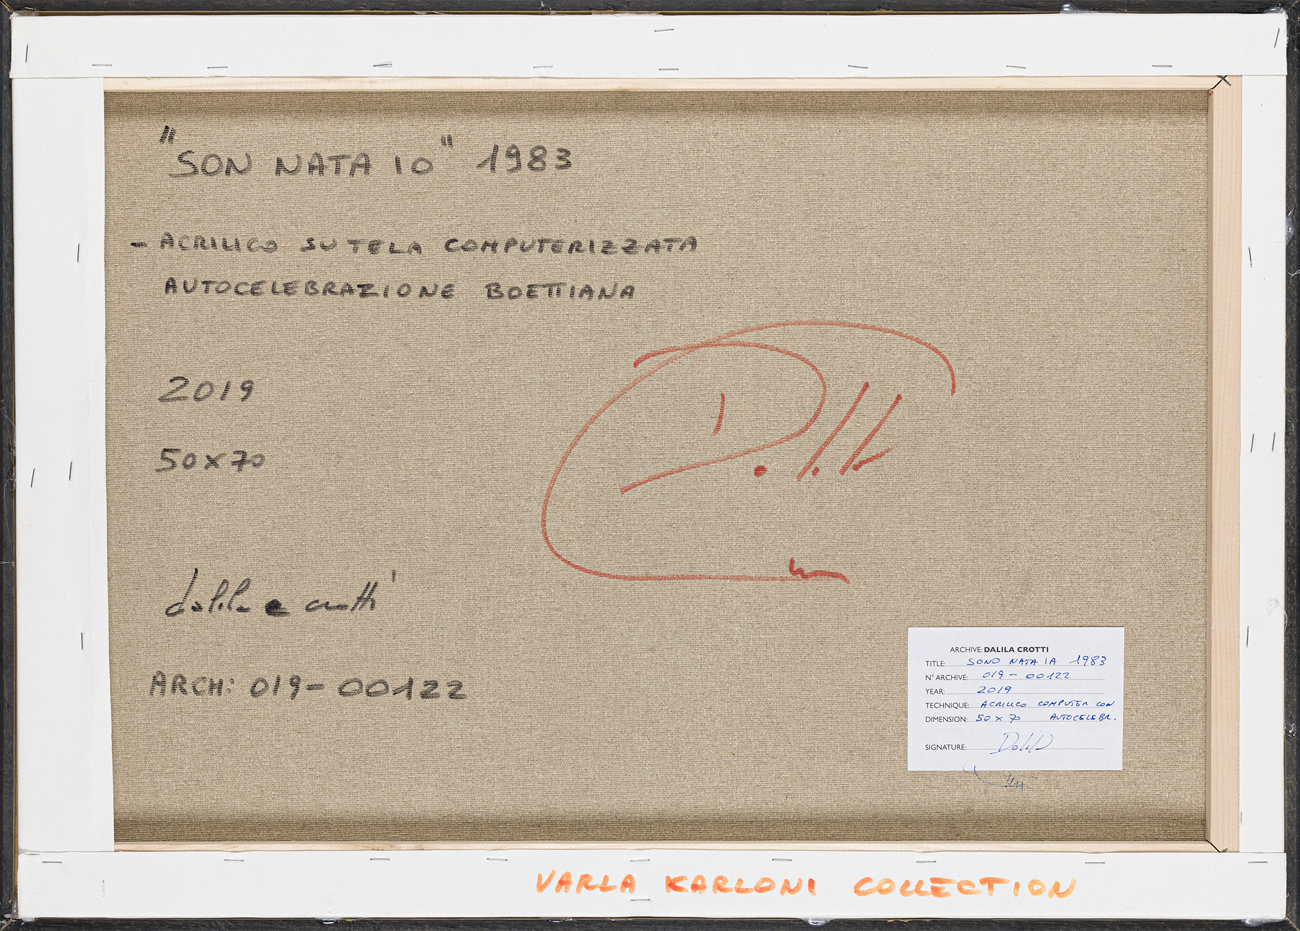 "SON NATA IO" 1983
- ACRILICO SU TELA COMPUTERIZZATA
AUTOCELEBRAZIONE BOETTIANA
2019
50x70
dalila crotti
ARCH: 019-00122
Dalila
ARCHIVE: DALILA CROTTI
TITLE: SONO NATA IA 1983
N° ARCHIVE: 019-00122
YEAR: 2019
TECHNIQUE: ACRILICO COMPUTER CON
DIMENSION: 50x70 AUTOCELEBR.
SIGNATURE:
VARLA KARLONI COLLECTION